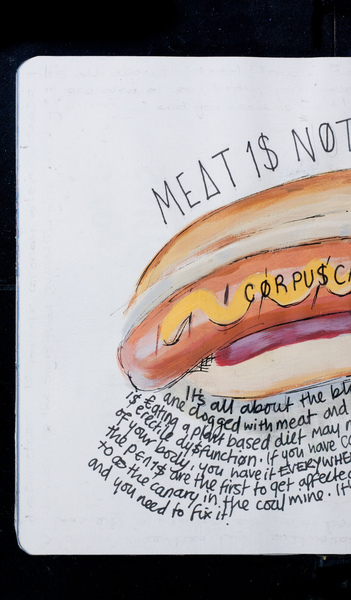 MEAT 1$ NØT
CØRPU$ CA
It$ all about the bl
are clogged with meat and
1$ Eating a plant based diet may
of erectile dy$function. If you have CO
your body, you have it EVERYWHE
the PEN1$ are the first to get affecte
to ∞ the canary in the coal mine. It
and you need to fix it!